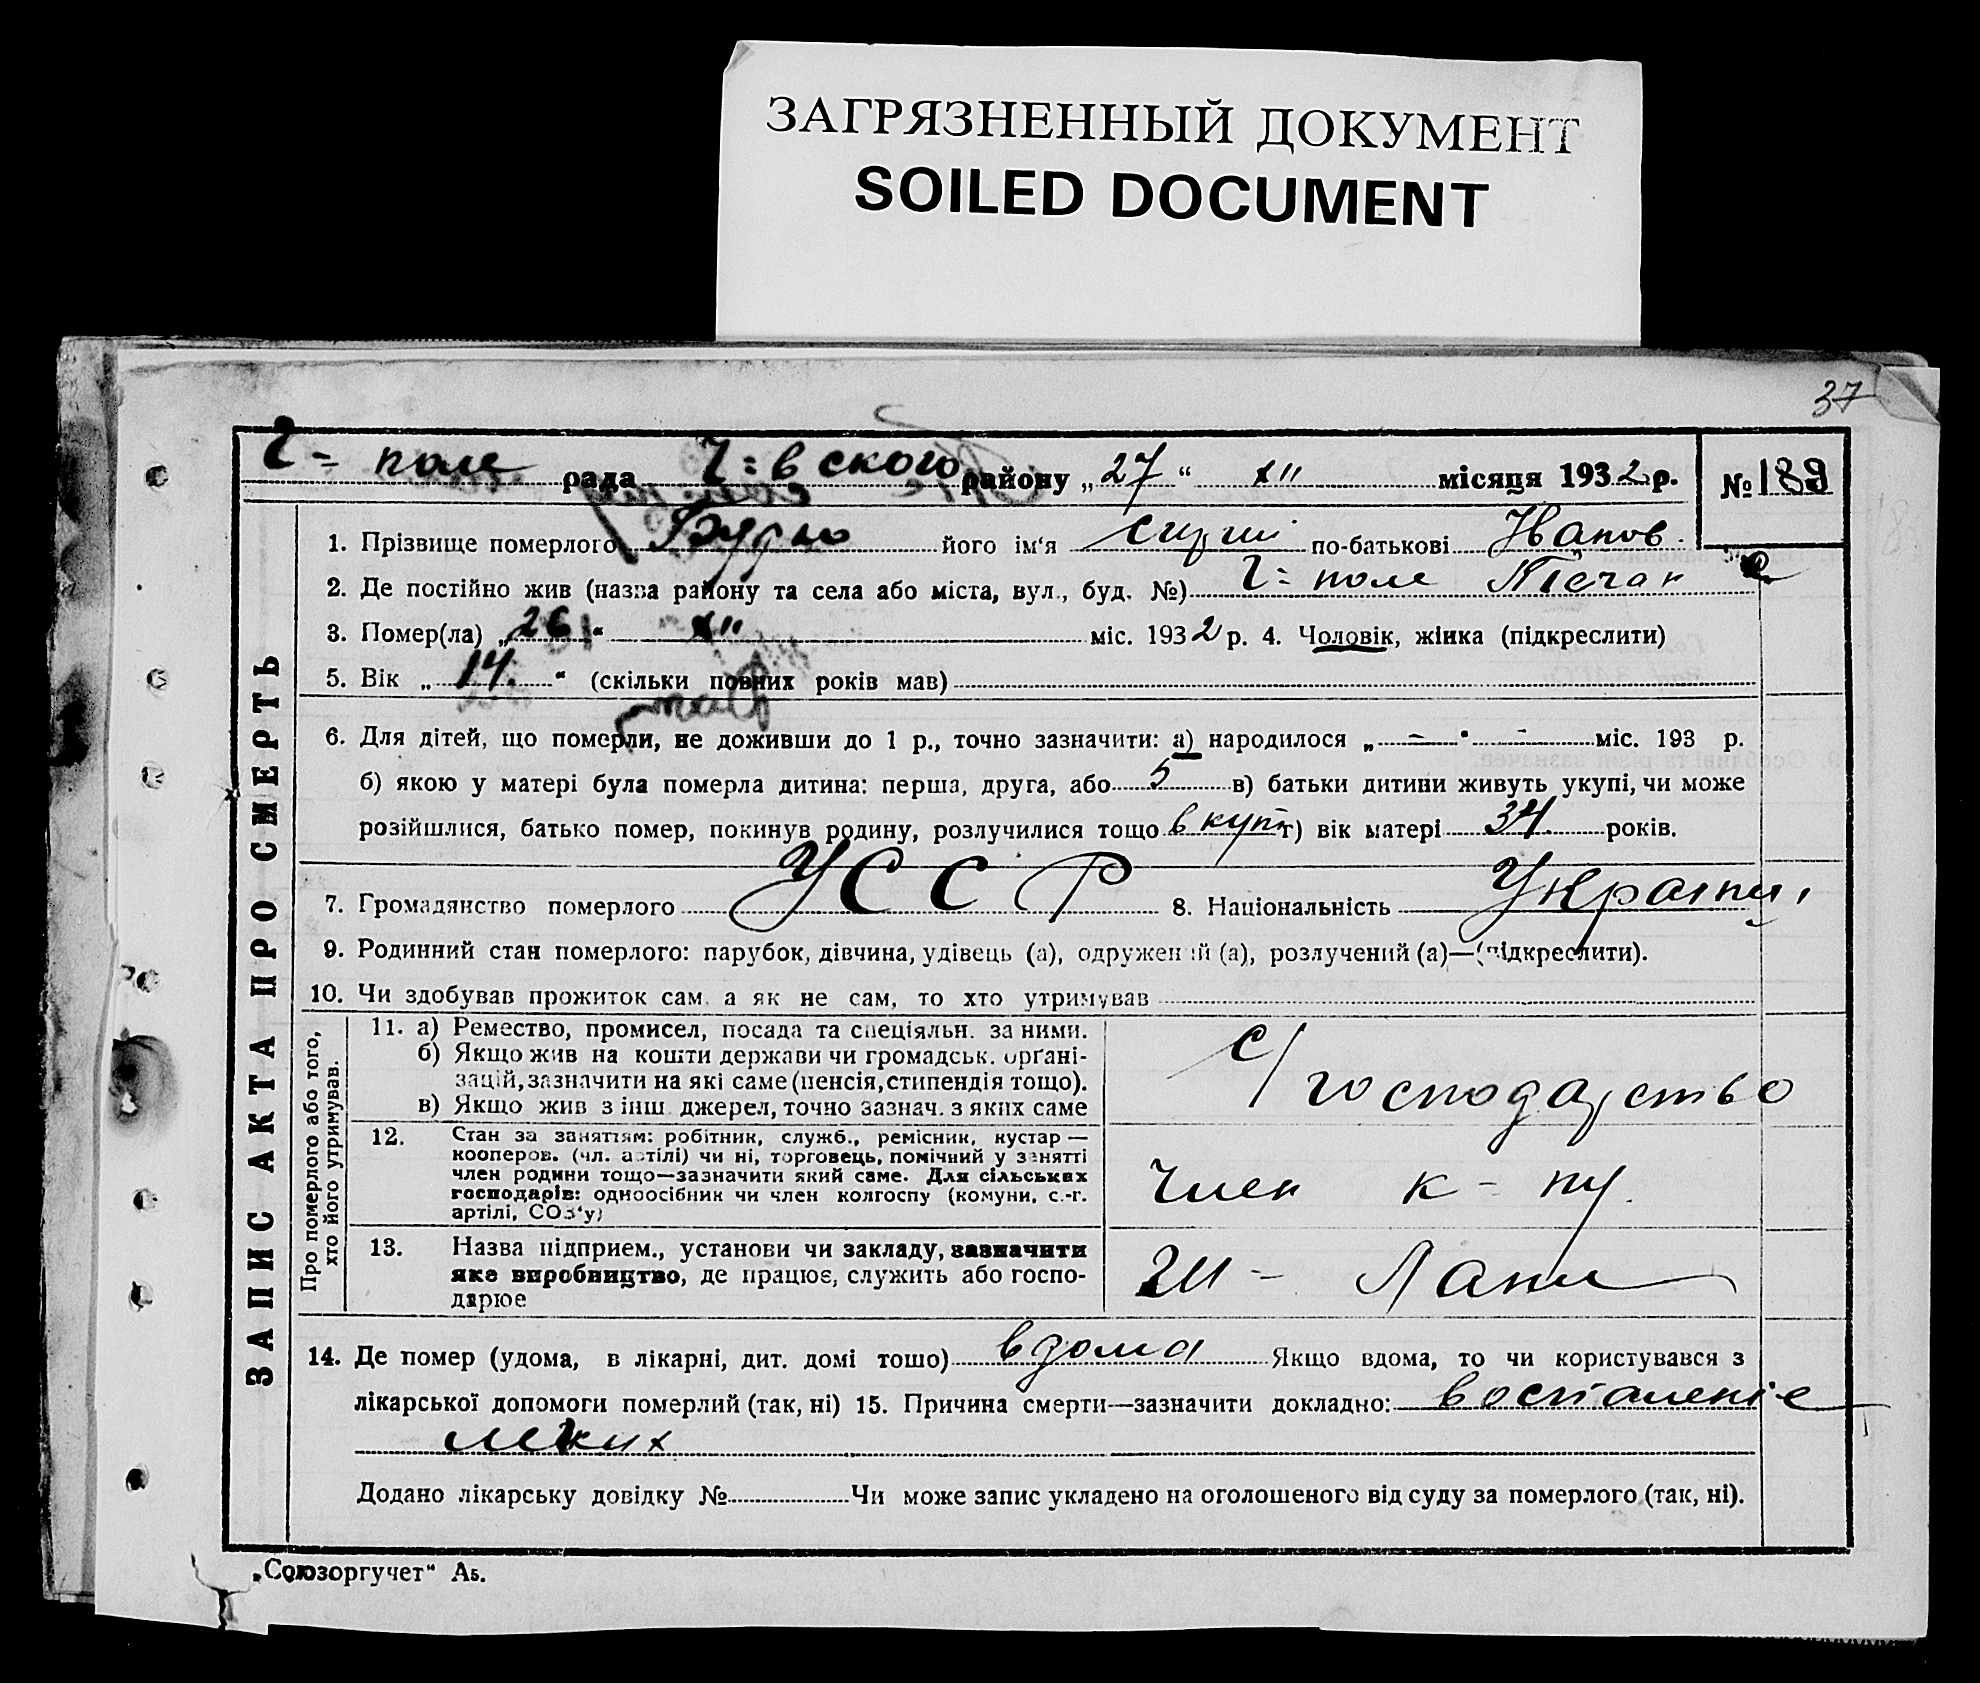 ЗАГРЯЗНЕННЫЙ ДОКУМЕНТ
SOILED DOCUMENT
37
Г= поле рада Г=вского району „27“ XII місяця 1932 р. № 189
1. Прізвище померлого його ім'я по-батькові
2. Де постійно жив (назва району та села або міста, вул., буд. №) Г= поле
3. Помер(ла) „26“ XII міс. 1932 р. 4. Чоловік, жінка (підкреслити)
5. Вік „14.“ (скільки повних років мав)
6. Для дітей, що померли, не доживши до 1 р., точно зазначити: а) народилося „ – “ – міс. 193 р.
б) якою у матері була померла дитина: перша, друга, або 5 в) батьки дитини живуть укупі, чи може
розійшлися, батько помер, покинув родину, розлучилися тощо вкупі г) вік матері 34 років.
7. Громадянство померлого УССР 8. Національність
9. Родинний стан померлого: парубок, дівчина, удівець (а), одружений (а), розлучений (а)—(підкреслити).
10. Чи здобував прожиток сам, а як не сам, то хто утримував
ЗАПИС АКТА ПРО СМЕРТЬ
Про померлого або того,
хто його утримував.
11. а) Ремество, промисел, посада та спеціяльн. за ними.
б) Якщо жив на кошти держави чи громадськ. орґані-
зацій, зазначити на які саме (пенсія, стипендія тощо).
в) Якщо жив з інш. джерел, точно зазнач. з яких саме
с/господарство
12. Стан за заняттям: робітник, служб., ремісник, кустар—
кооперов. (чл. артілі) чи ні, торговець, помічний у занятті
член родини тощо—зазначити який саме. Для сільських
господарів: одноосібник чи член колгоспу (комуни, с.-г.
артілі, СОЗ'у)
Член к-пу.
13. Назва підприєм., установи чи закладу, зазначити
яке виробництво, де працює, служить або госпо-
дарює
14. Де помер (удома, в лікарні, дит. домі тощо) вдома Якщо вдома, то чи користувався з
лікарської допомоги померлий (так, ні) 15. Причина смерти—зазначити докладно: воспаленіе
легких
Додано лікарську довідку № Чи може запис укладено на оголошеного від суду за померлого (так, ні).
„Союзоргучет“ А5.